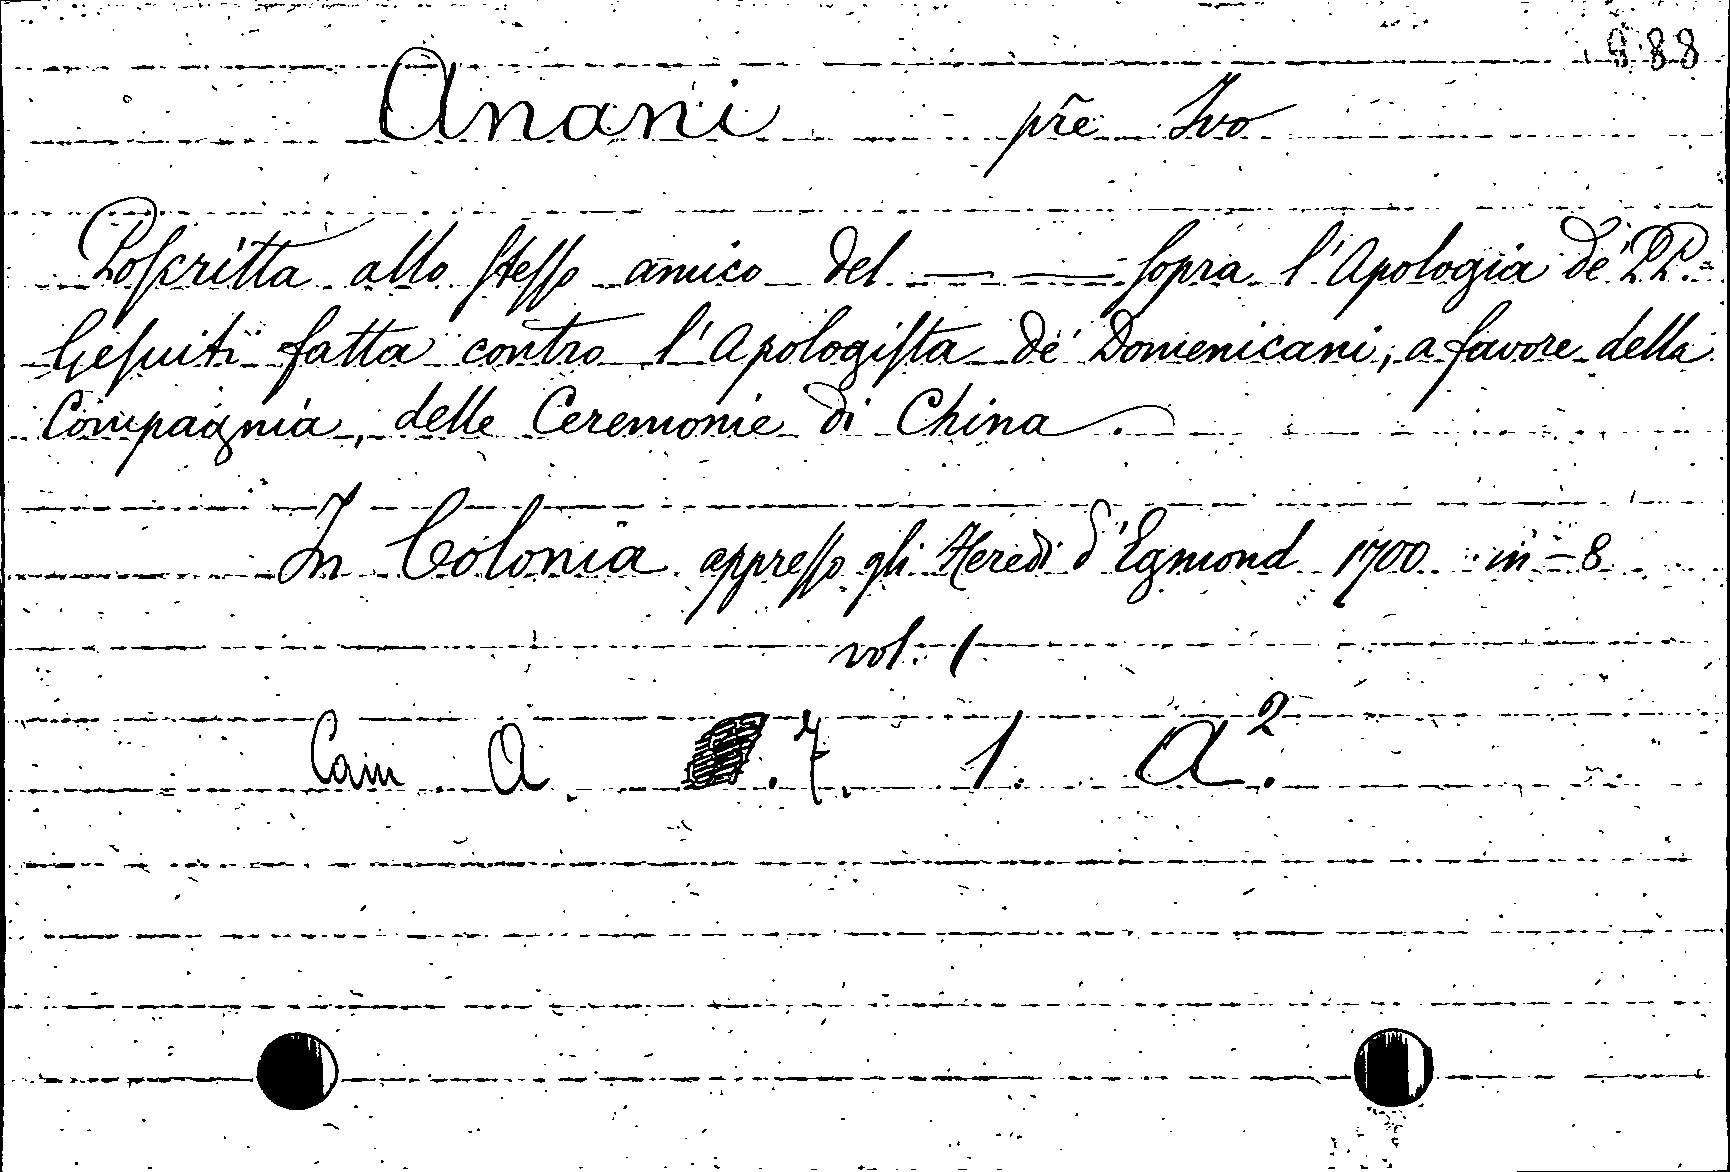 988
Anani pr̃e Ivo
Poſcritta allo ſteſſo amico del — — ſopra l'Apologia de' PP.
Geſuiti fatta contro l'Apologiſta de' Domenicani, a favore della
Compagnia, delle Ceremonie di China.
In Colonia appreſſo gli Heredi d'Egmond 1700 in-8
vol. 1
Cam A. . 7. 1. A².